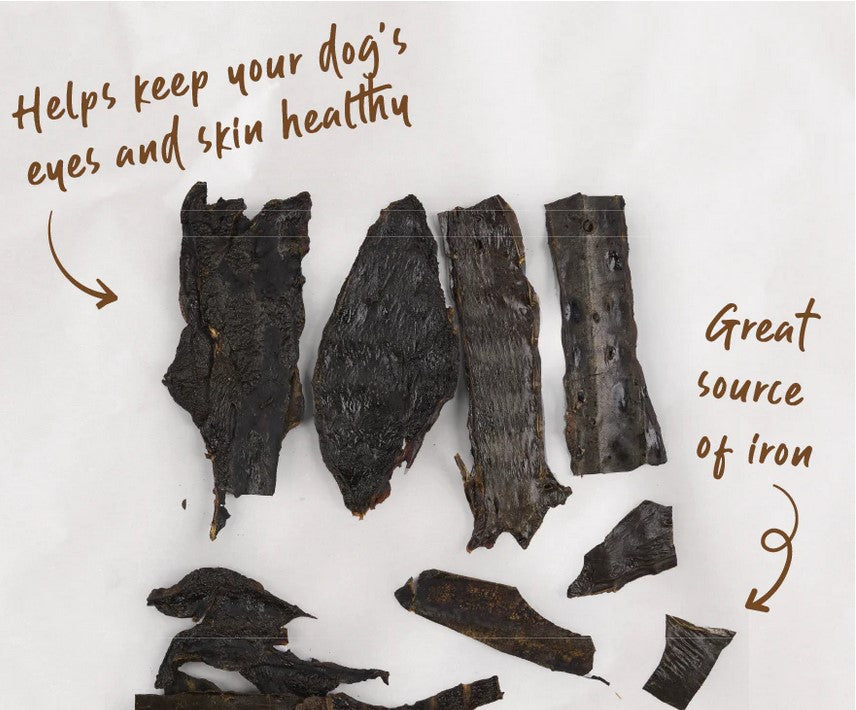 Helps keep your dog's
eyes and skin healthy
Great
source
of iron